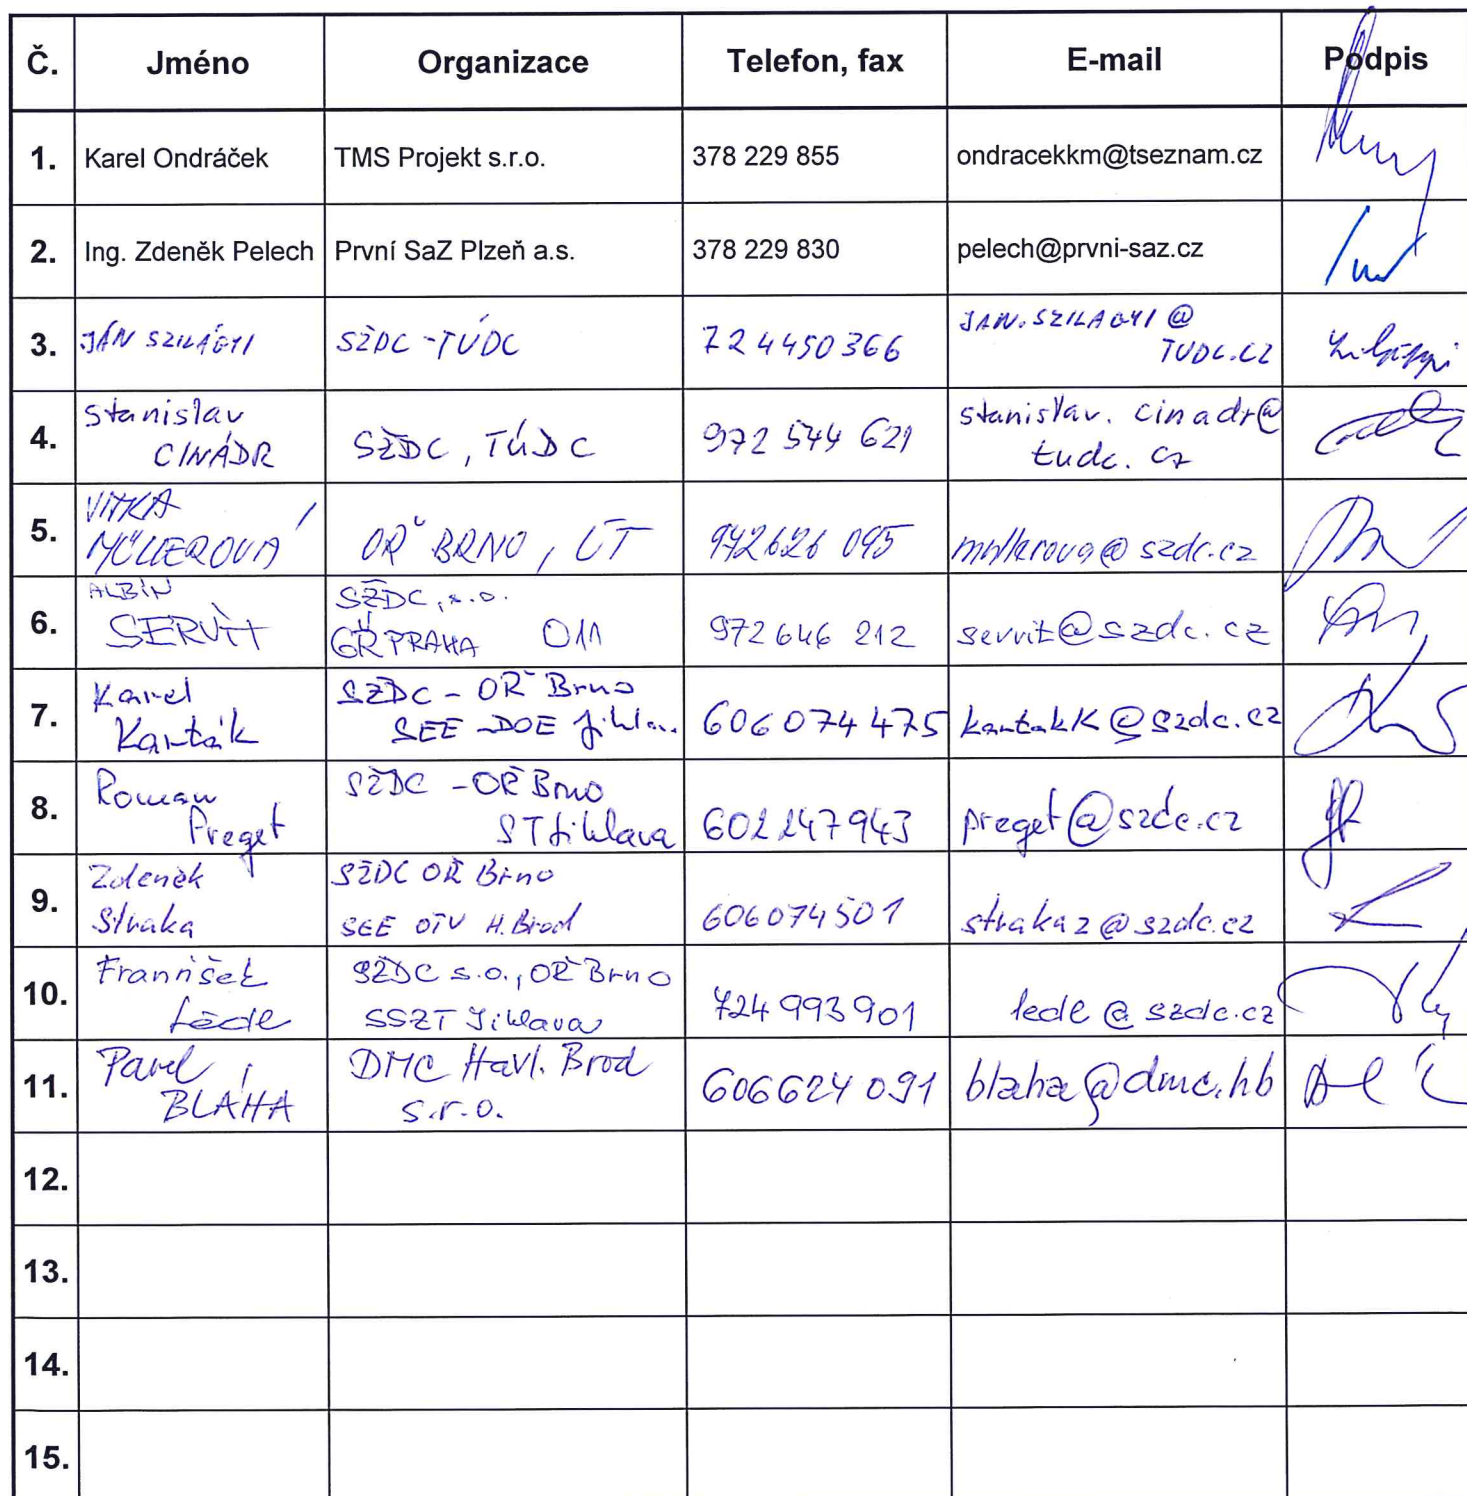 Č. Jméno Organizace Telefon, fax E-mail Podpis
1. Karel Ondráček TMS Projekt s.r.o. 378 229 855 ondracekkm@tseznam.cz
2. Ing. Zdeněk Pelech První SaZ Plzeň a.s. 378 229 830 pelech@prvni-saz.cz
3. JÁN SZILÁGYI SŽDC - TÚDC 724450366 JAN.SZILAGYI@
TUDC.CZ
4. Stanislav
CINÁDR SŽDC, TÚDC 972 544 621 stanislav.cinadr@
tudc.cz
5.
MÜLLEROVÁ OŘ BRNO, ÚT 972626 095 mullerova@szdc.cz
6. ALBÍN
SERVÍT SŽDC, s.o.
GŘ PRAHA O11 972 646 212 servit@szdc.cz
7. Karel
Karták SŽDC - OŘ Brno
SEE - DOE 606 074 475 kartakK@szdc.cz
8. Roman
Preget SŽDC - OŘ Brno
ST Jihlava 602 247943 preget@szdc.cz
9. Zdeněk
Straka SŽDC OŘ Brno
SEE OTV H. Brod 606074501 strakaz@szdc.cz
10. František
Léde SŽDC s.o., OŘ Brno
SSZT Jihlava 724 993 901 lede@szdc.cz
11. Pavel
BLÁHA DMC Havl. Brod
s.r.o. 606624 091 blaha@dmc.hb
12.
13.
14.
15.